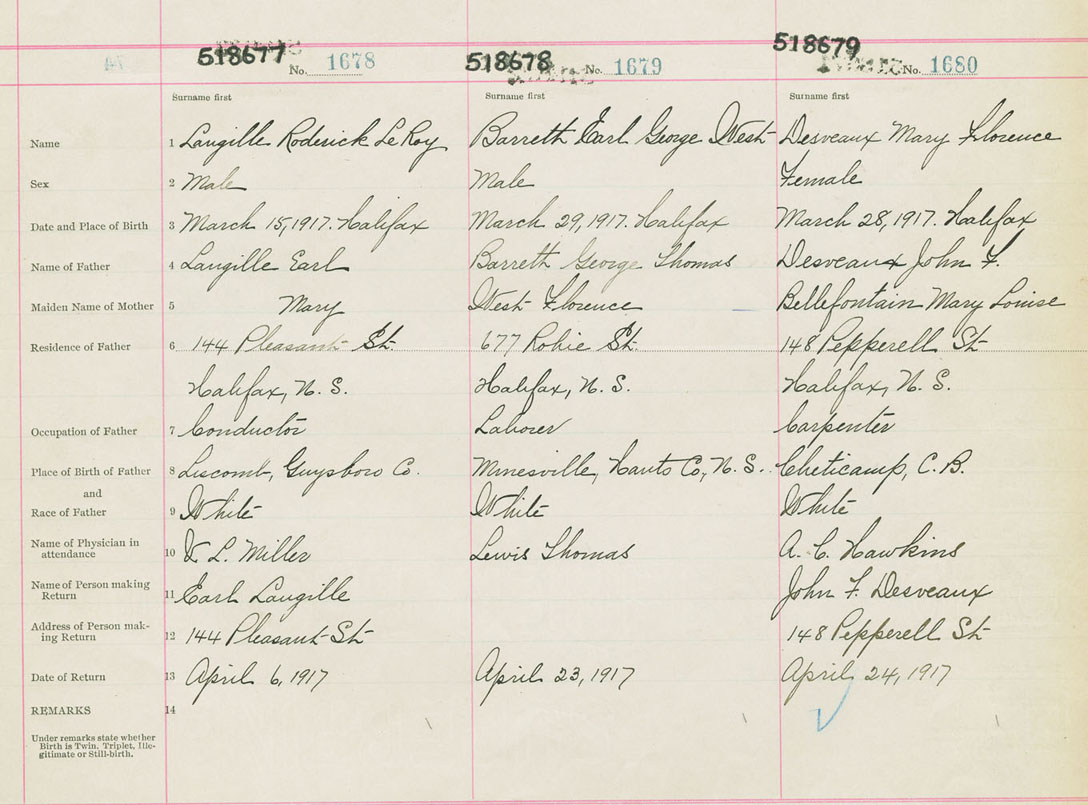 518677 No. 1678 518678 No. 1679 518679 No. 1680
Surname first Surname first Surname first
Name 1 Langille Roderick LeRoy Barrett Earl George West Desveaux Mary Florence
Sex 2 Male Male Female
Date and Place of Birth 3 March 15, 1917. Halifax March 29, 1917. Halifax March 28, 1917. Halifax
Name of Father 4 Langille Earl Barrett George Thomas Desveaux John F.
Maiden Name of Mother 5 Mary West Florence Bellefontain Mary Louise
Residence of Father 6 144 Pleasant St. 677 Robie St. 148 Pepperell St
Halifax, N. S. Halifax, N. S. Halifax, N. S.
Occupation of Father 7 Conductor Laborer Carpenter
Place of Birth of Father 8 Liscomb, Guysboro Co. Minesville, Hants Co., N. S. Cheticamp, C. B.
and
Race of Father 9 White White White
Name of Physician in
attendance 10 L. Miller Lewis Thomas A. C. Hawkins
Name of Person making
Return 11 Earl Langille John F. Desveaux
Address of Person mak-
ing Return 12 144 Pleasant St 148 Pepperell St
Date of Return 13 April 6, 1917 April 23, 1917 April 24, 1917
REMARKS 14
Under remarks state whether
Birth is Twin, Triplet, Ille-
gitimate or Still-birth.